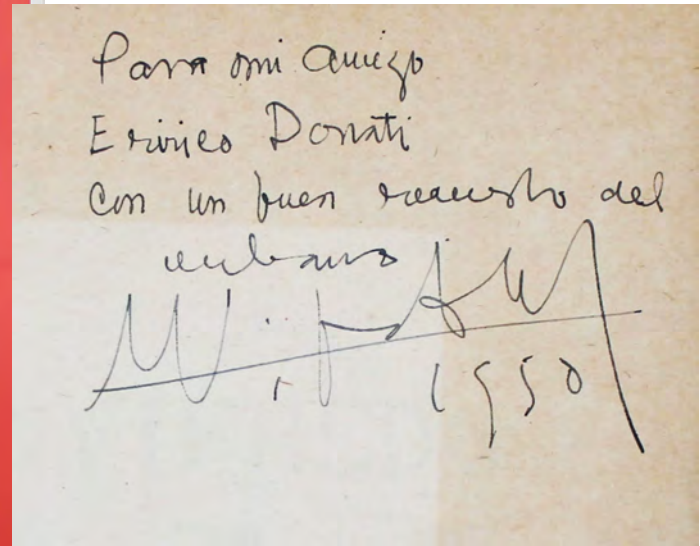 Para mi amigo
Enrico Donati
con un buen recuerdo del
1950